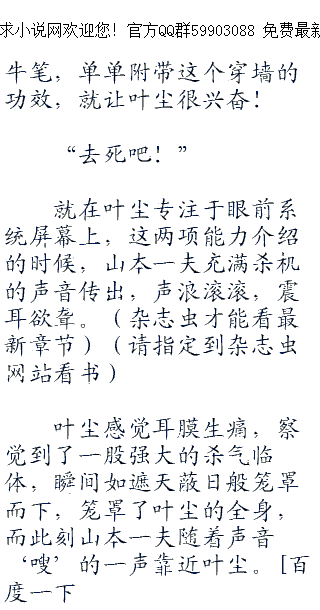 求小说网欢迎您！官方QQ群59903088 免费最新
牛笔，单单附带这个穿墙的
功效，就让叶尘很兴奋！
“去死吧！”
就在叶尘专注于眼前系
统屏幕上，这两项能力介绍
的时候，山本一夫充满杀机
的声音传出，声浪滚滚，震
耳欲聋。（杂志虫才能看最
新章节）（请指定到杂志虫
网站看书）
叶尘感觉耳膜生痛，察
觉到了一股强大的杀气临
体，瞬间如遮天蔽日般笼罩
而下，笼罩了叶尘的全身，
而此刻山本一夫随着声音
‘嗖’的一声靠近叶尘。[百
度一下